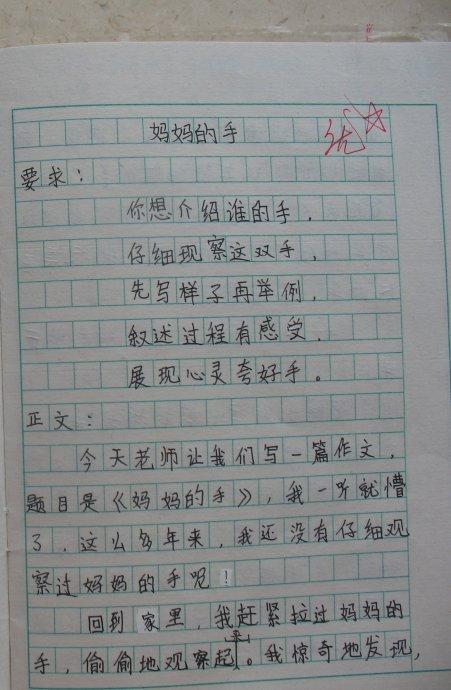 妈妈的手
优
要求：
你想介绍谁的手，
仔细现察这双手，
先写样子再举例，
叙述过程有感受，
展现心灵夸好手。
正文：
今天老师让我们写一篇作文，
题目是《妈妈的手》，我一听就懵
了，这么多年来，我还没有仔细观
察过妈妈的手呢！
回到家里，我赶紧拉过妈妈的
手，偷偷地观察起来。我惊奇地发现，